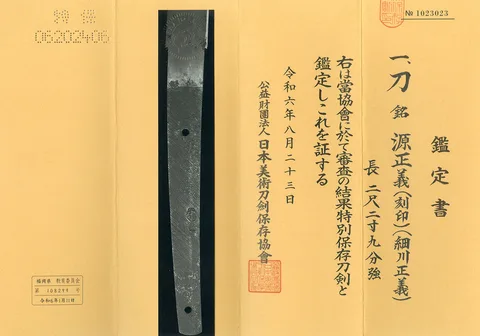 № 1023023
鑑定書
一、刀 銘 源正義(刻印)(細川正義)
長 二尺二寸九分強
右は當協會に於て審査の結果特別保存刀剣と
鑑定しこれを証する
令和六年八月二十三日
公益財團法人 日本美術刀剣保存協會
特保
06202406